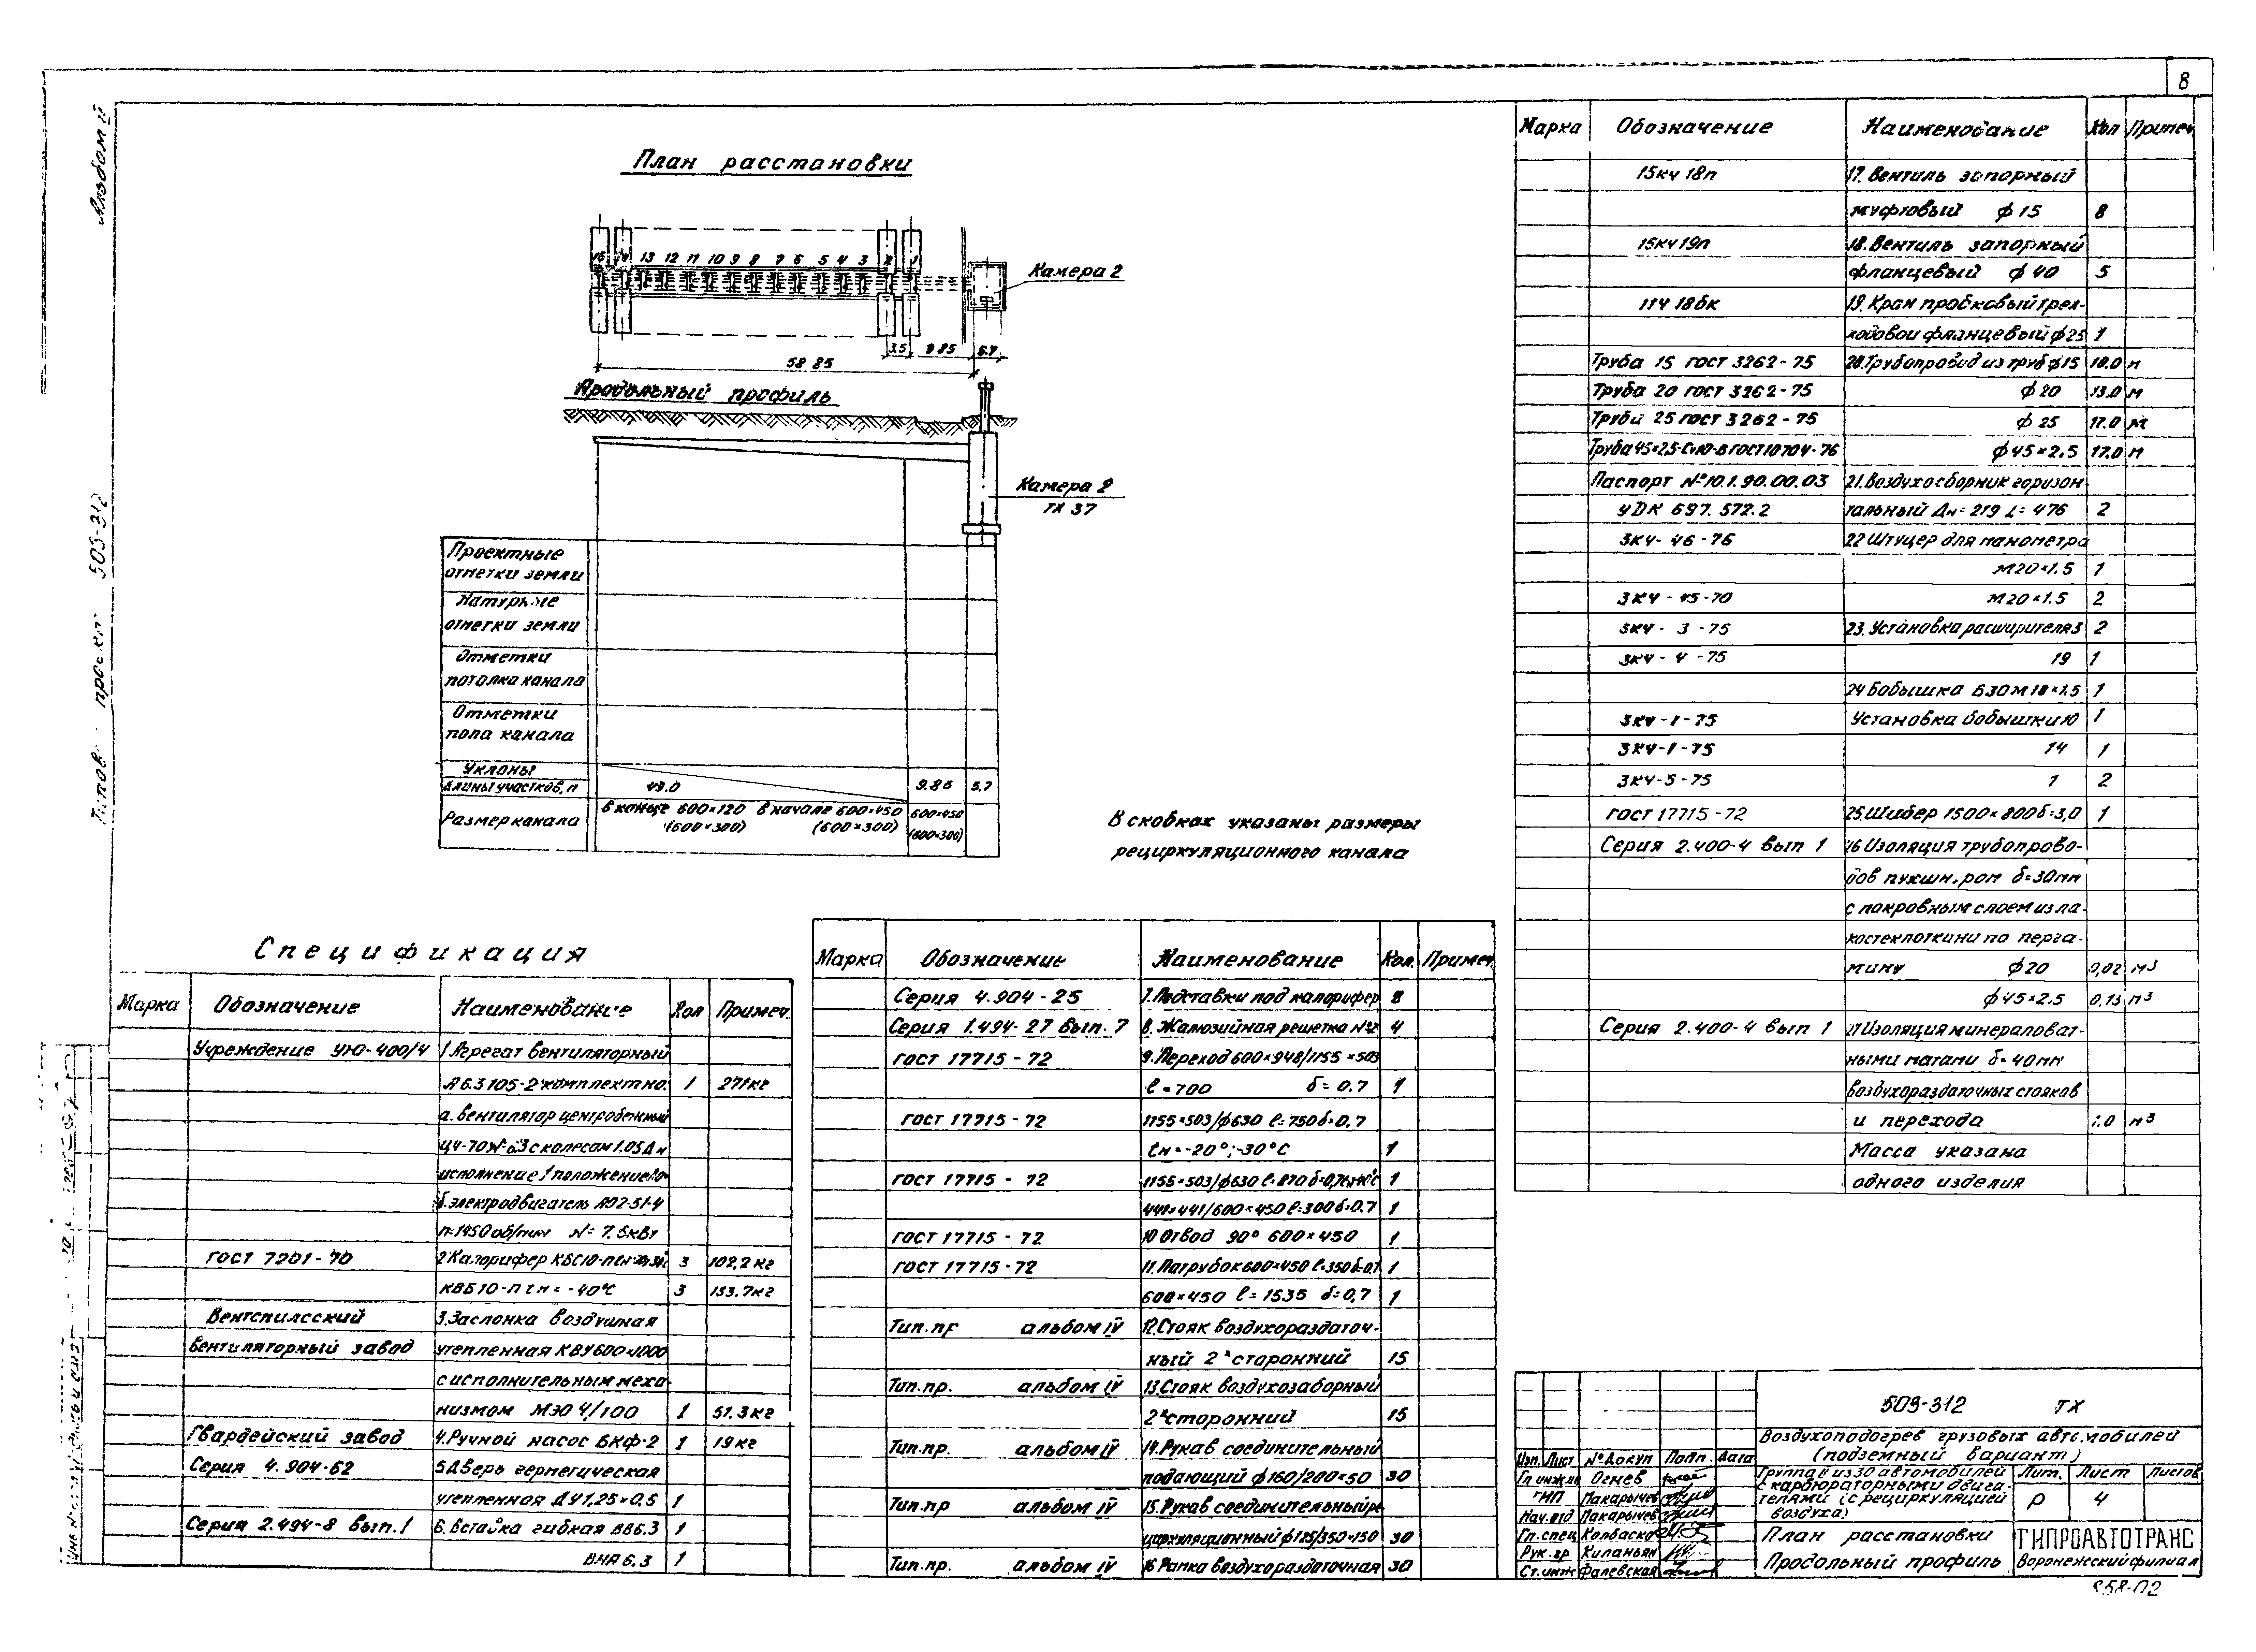 8
Альбом II
Типовой проект 503-312
План расстановки
13 12 11 10 9 8 7 6 5 4 3 2 1
Камера 2
3.5 9.85 5.7
58.85
Продольный профиль
Камера 2
ТХ 37
Проектные
отметки земли
Натурные
отметки земли
Отметки
потолка канала
Отметки
пола канала
Уклоны
Длины участков, м 49.0 9.85 5.7
Размер канала в конце 600×120 в начале 600×450 600×450
(600×300) (600×300) (600×300)
В скобках указаны размеры
рециркуляционного канала
Спецификация
Марка Обозначение Наименование Кол Примеч.
Учреждение УЮ-400/4 1.Агрегат вентиляторный
А6.3105-2 комплектно 1 271кг
а. вентилятор центробежный
Ц4-70 №6.3 с колесом 1.05Дн
исполнение 1 положение
б.электродвигатель АО2-51-4
n=1450об/мин N=7.5кВт
ГОСТ 7201-70 2 Калорифер КВС10-П 3 102,2 кг
КВБ10-П tн=-40°С 3 133.7кг
Вентспилсский 3.Заслонка воздушная
вентиляторный завод утепленная КВУ600×1000
с исполнительным меха-
низмом МЭО 4/100 1 51.3кг
Гвардейский завод 4.Ручной насос БКФ-2 1 19кг
Серия 4.904-62 5 Дверь герметическая
утепленная ДУ1,25×0.5 1
Серия 2.494-8 вып.1 6.Вставка гибкая ВВ6.3 1
ВНА 6.3 1
Марка Обозначение Наименование Кол. Примеч.
Серия 4.904-25 7.Подставки под калорифер 8
Серия 1.494-27 вып.7 8.Жалюзийная решетка №2 4
ГОСТ 17715-72 9.Переход 600×948/1155×503
ℓ=700 δ=0.7 1
ГОСТ 17715-72 1155×503/ф630 ℓ=750 δ=0,7
tн=-20°;-30°С 1
ГОСТ 17715-72 1155×503/ф630 ℓ=870 δ=0,7 1
441×441/600×450 ℓ=300 δ=0.7 1
ГОСТ 17715-72 10 Отвод 90° 600×450 1
ГОСТ 17715-72 11.Патрубок 600×450 ℓ=350 δ=0.7 1
600×450 ℓ=1535 δ=0,7 1
Тип.пр альбом IV 12.Стояк воздухораздаточ-
ный 2х сторонний 15
Тип.пр. альбом IV 13.Стояк воздухозаборный
2х сторонний 15
Тип.пр. альбом IV 14.Рукав соединительный
подающий ф160/200×50 30
Тип.пр альбом IV 15.Рукав соединительный ре-
циркуляционный ф125/350×150 30
Тип.пр. альбом IV 16 Рамка воздухораздаточная 30
Марка Обозначение Наименование Кол Примеч
15кч 18п 17.Вентиль запорный
муфтовый ф15 8
15кч 19п 18.Вентиль запорный
фланцевый ф40 5
11ч 18бк 19.Кран пробковый трех-
ходовой фланцевый ф25 1
Труба 15 ГОСТ 3262-75 20.Трубопровод из труб ф15 10.0 м
Труба 20 ГОСТ 3262-75 ф20 13.0 м
Труба 25 ГОСТ 3262-75 ф25 17.0 м
Труба 45×2,5-Ст10-В ГОСТ10704-76 ф45×2.5 17.0 м
Паспорт №10.1.90.00.03 21.Воздухосборник горизон
УДК 697.572.2 тальный Дн=219 L=476 2
3К4-46-76 22 Штуцер для манометра
М20×1.5 1
3К4-45-70 М20×1.5 2
3К4-3-75 23.Установка расширителя 3 2
3К4-4-75 19 1
24 Бобышка Б30 М18×1.5 1
3К4-1-75 Установка бобышки 10 1
3К4-1-75 14 1
3К4-5-75 1 2
ГОСТ 17715-72 25.Шибер 1500×800 δ=3,0 1
Серия 2.400-4 вып 1 26 Изоляция трубопрово-
дов δ=30мм
с покровным слоем из ла-
костеклоткани по перга-
мину ф20 0,02 м³
ф45×2.5 0,13 м³
Серия 2.400-4 вып 1 27 Изоляция минераловат-
ными матами δ=40мм
воздухораздаточных стояков
и перехода 1.0 м³
Масса указана
одного изделия
503-312 ТХ
Воздухоподогрев грузовых автомобилей
(подземный вариант)
Изм. Лист №Докум Подп. Дата
Группа II из 30 автомобилей Лит. Лист Листов
с карбюраторными двига- Р 4
телями (с рециркуляцией
воздуха)
Гл инж.ин Огнев
ГИП Макарычев
Нач.отд Макарычев
Гл.спец Колбаско
Рук.гр Киланьян
Ст.инж Фалевская
План расстановки
Продольный профиль
ГИПРОАВТОТРАНС
Воронежский филиал
858-02